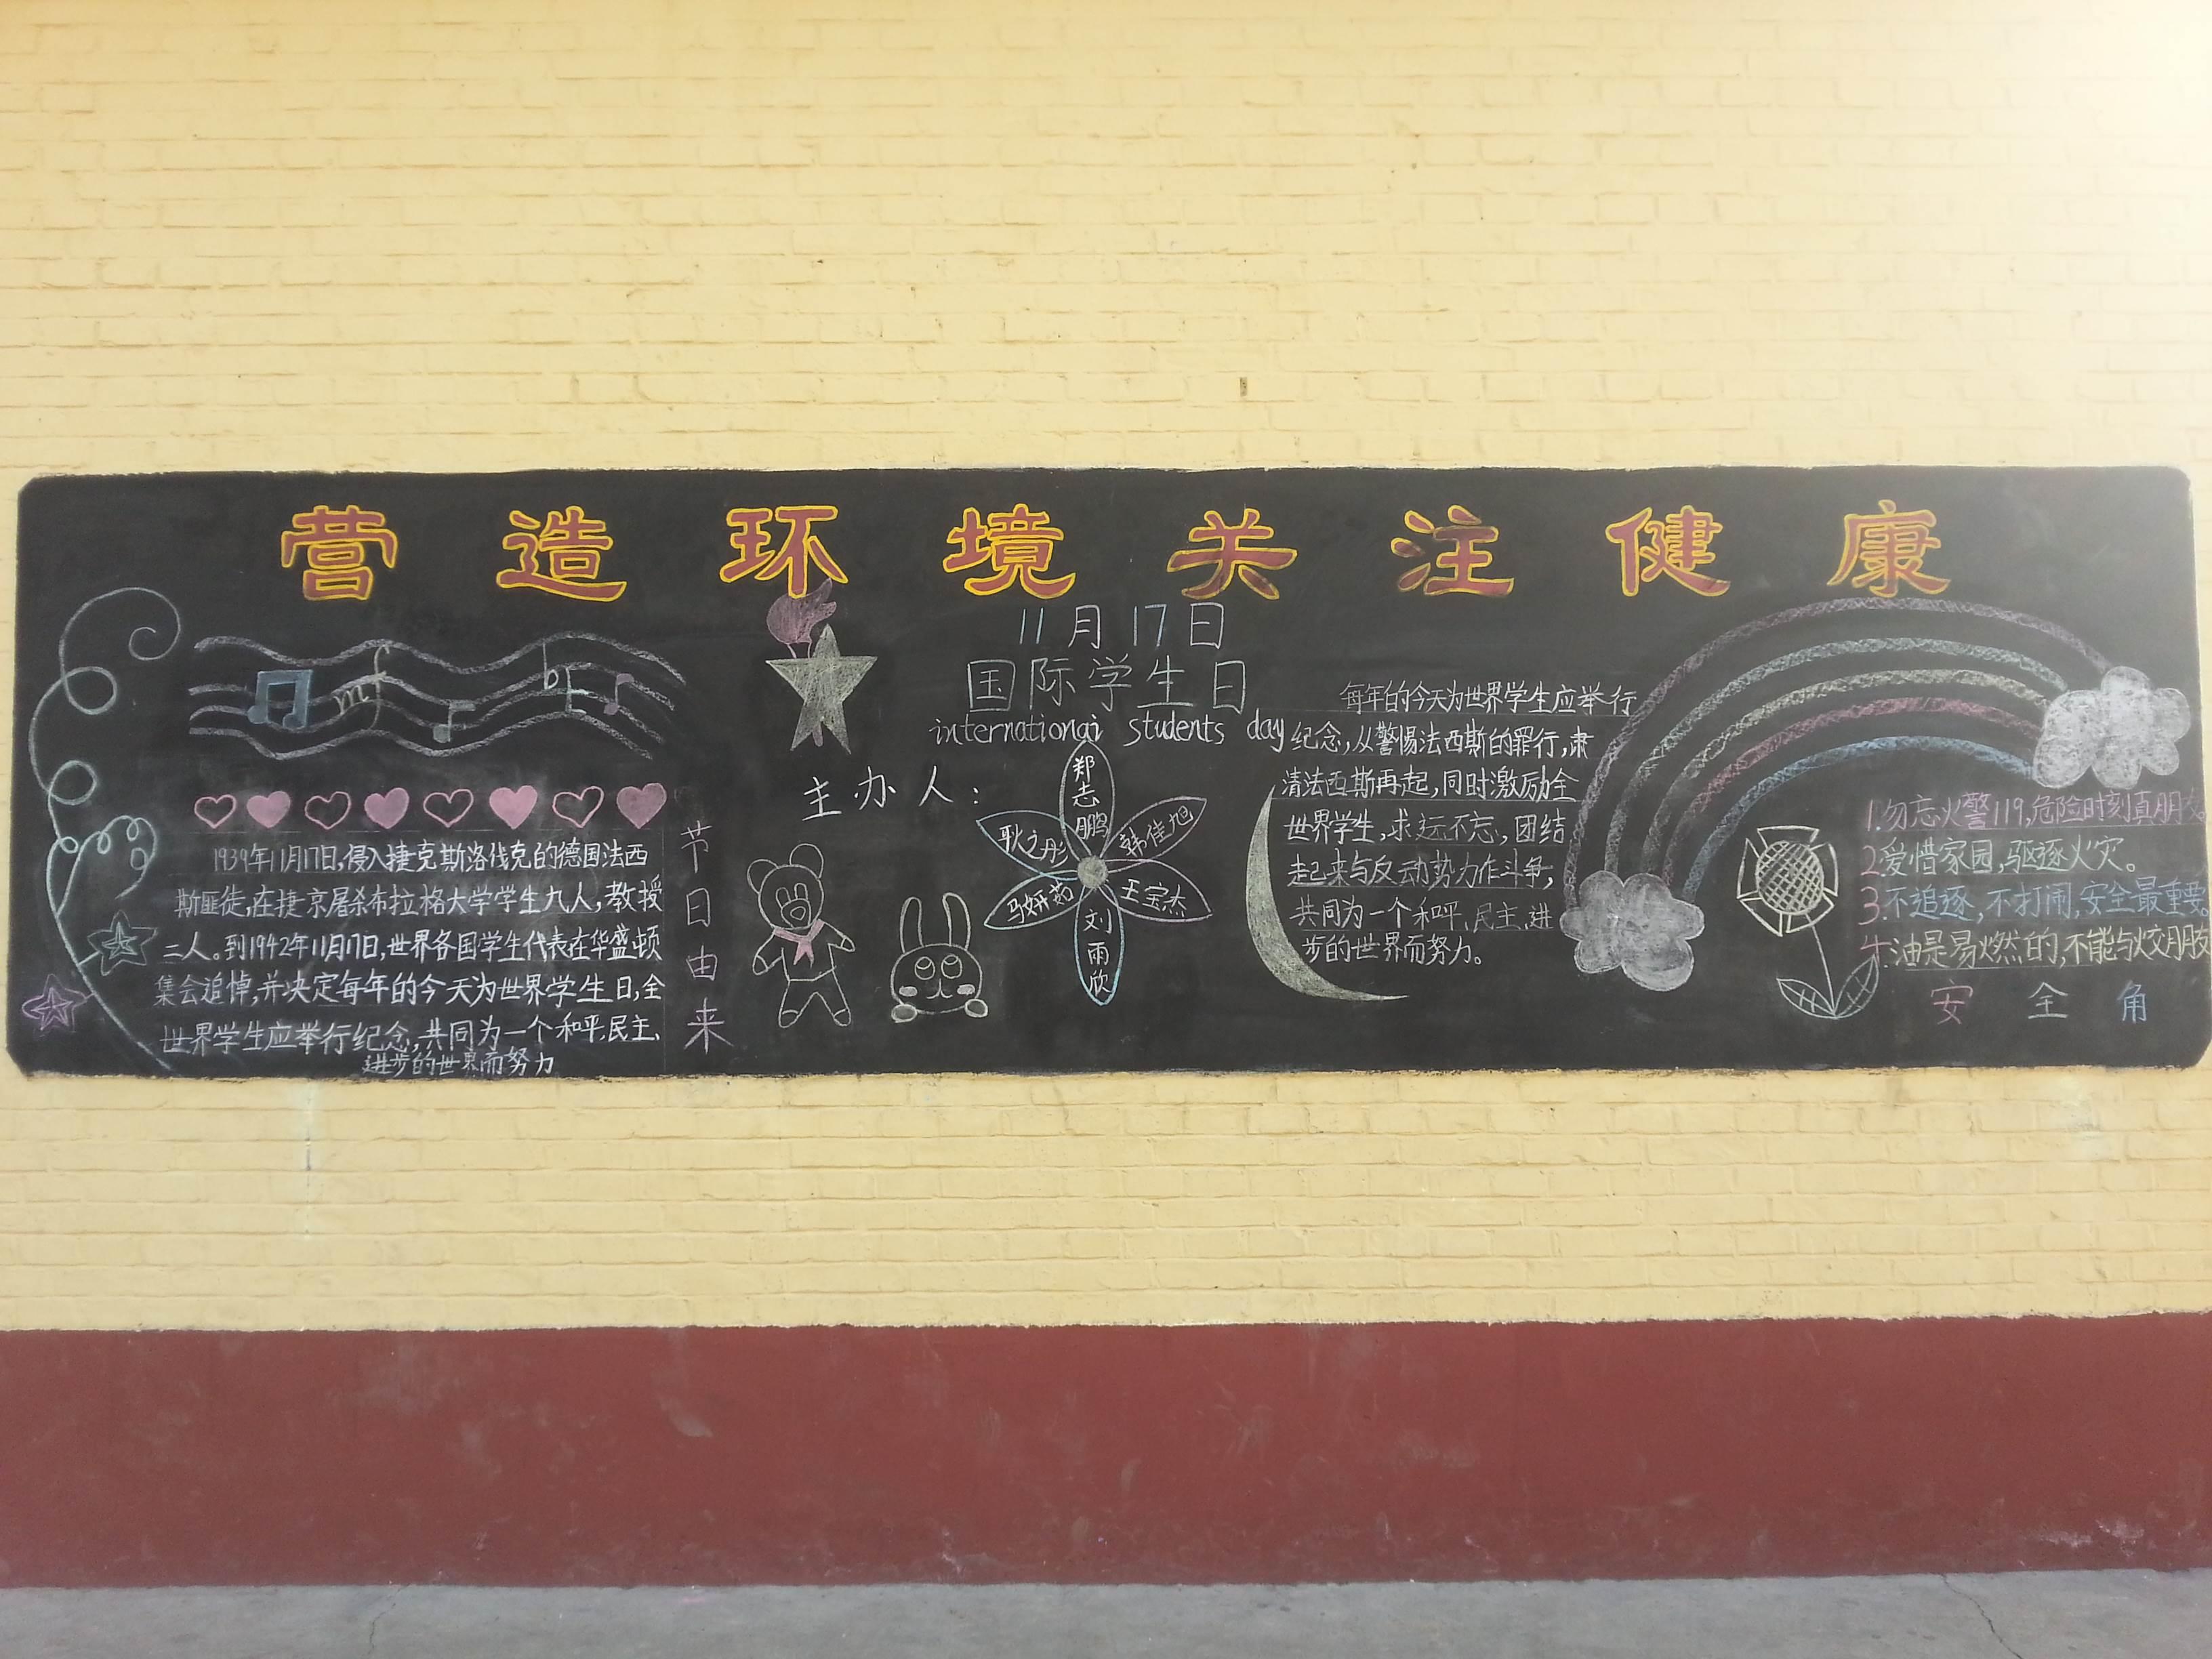 营造环境关注健康
1939年11月17日,侵入捷克斯洛伐克的德国法西
斯匪徒,在捷京屠杀布拉格大学学生九人,教授
二人。到1942年11月17日,世界各国学生代表在华盛顿
集会追悼,并决定每年的今天为世界学生日,全
世界学生应举行纪念,共同为一个和平、民主、
进步的世界而努力
节日由来
11月17日
国际学生日
internationai students day
主办人:
郑志鹏
韩佳旭
王宝杰
刘雨欣
马妍茹
耿之彤
每年的今天为世界学生应举行
纪念,从警惕法西斯的罪行,肃
清法西斯再起,同时激励全
世界学生,求远不忘,团结
起来与反动势力作斗争,
共同为一个和平、民主、进
步的世界而努力。
1.勿忘火警119,危险时刻真朋友
2.爱惜家园,驱逐火灾。
3.不追逐,不打闹,安全最重要
4.油是易燃的,不能与火交朋友
安全角